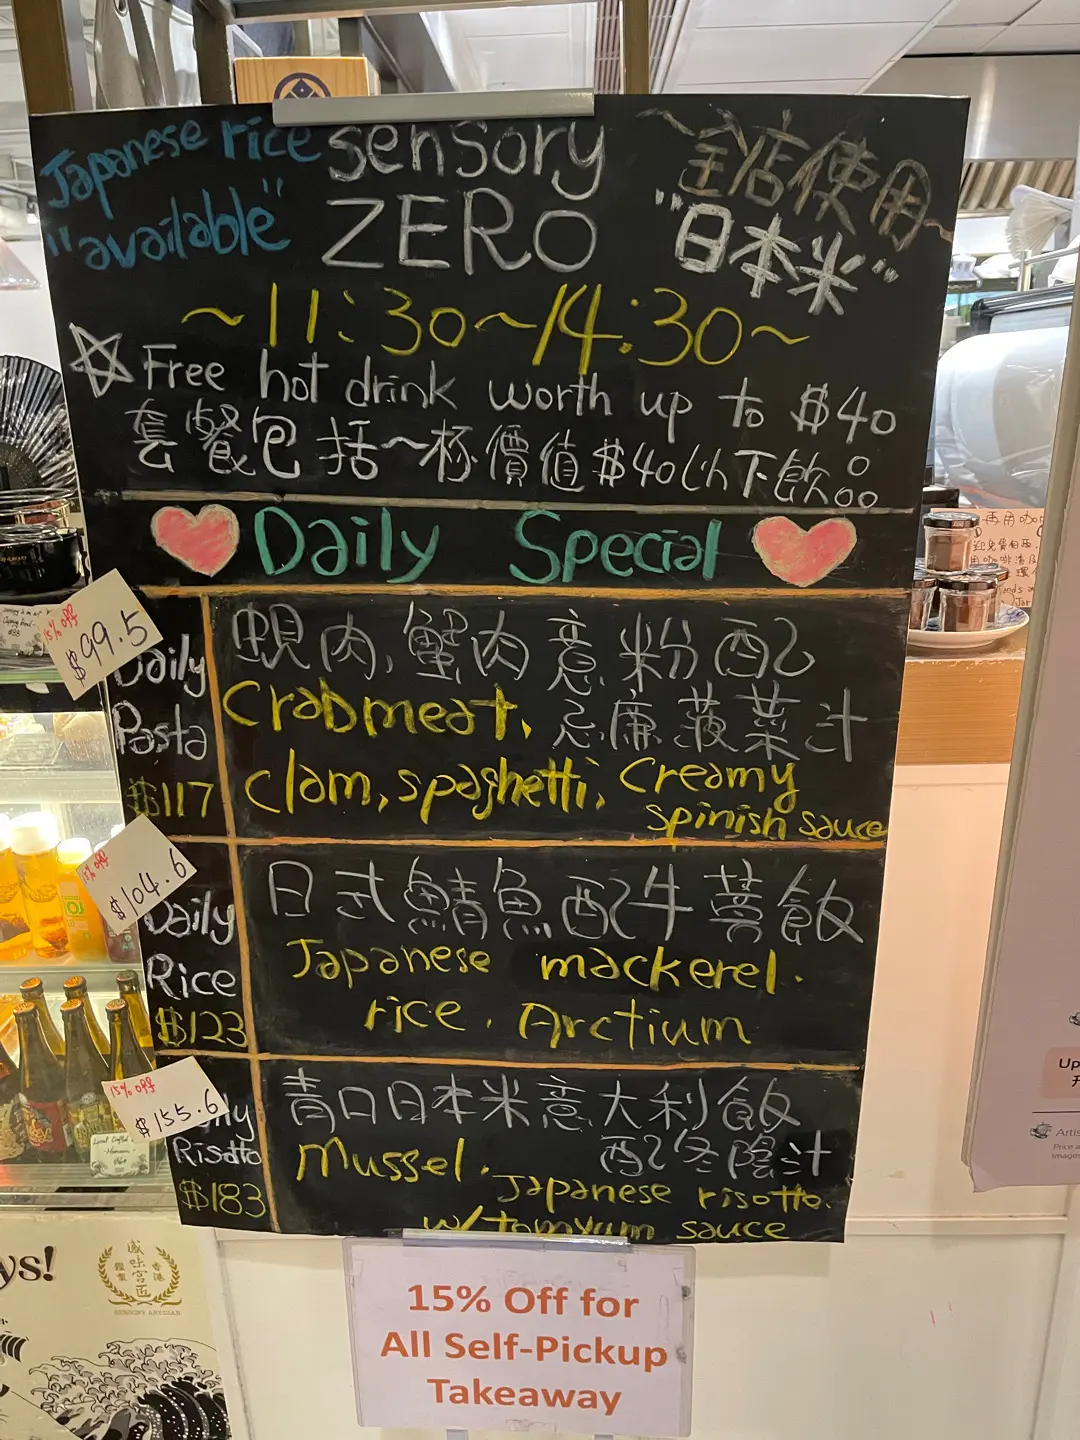 Japanese rice
"available"
sensory
ZERO
~全店使用~
"日本米"
~11:30~14:30~
Free hot drink worth up to $40
套餐包括一杯價值$40以下飲品
Daily Special
15% off
$99.5
Daily
Pasta
$117
蜆肉,蟹肉意粉配
忌廉菠菜汁
Crabmeat,
clam, spaghetti, creamy
spinish sauce
15% off
$104.6
Daily
Rice
$123
日式鯖魚配牛蒡飯
Japanese mackerel.
rice. Arctium
15% off
$155.6
Risotto
$183
青口日本米意大利飯
配冬陰汁
Mussel.
Japanese risotto.
w/tomyum sauce
15% Off for
All Self-Pickup
Takeaway
ys!
感味宫匠
香港
SENSORY ARTISAN
Local Crafted
Up
Artis
Price a
Images